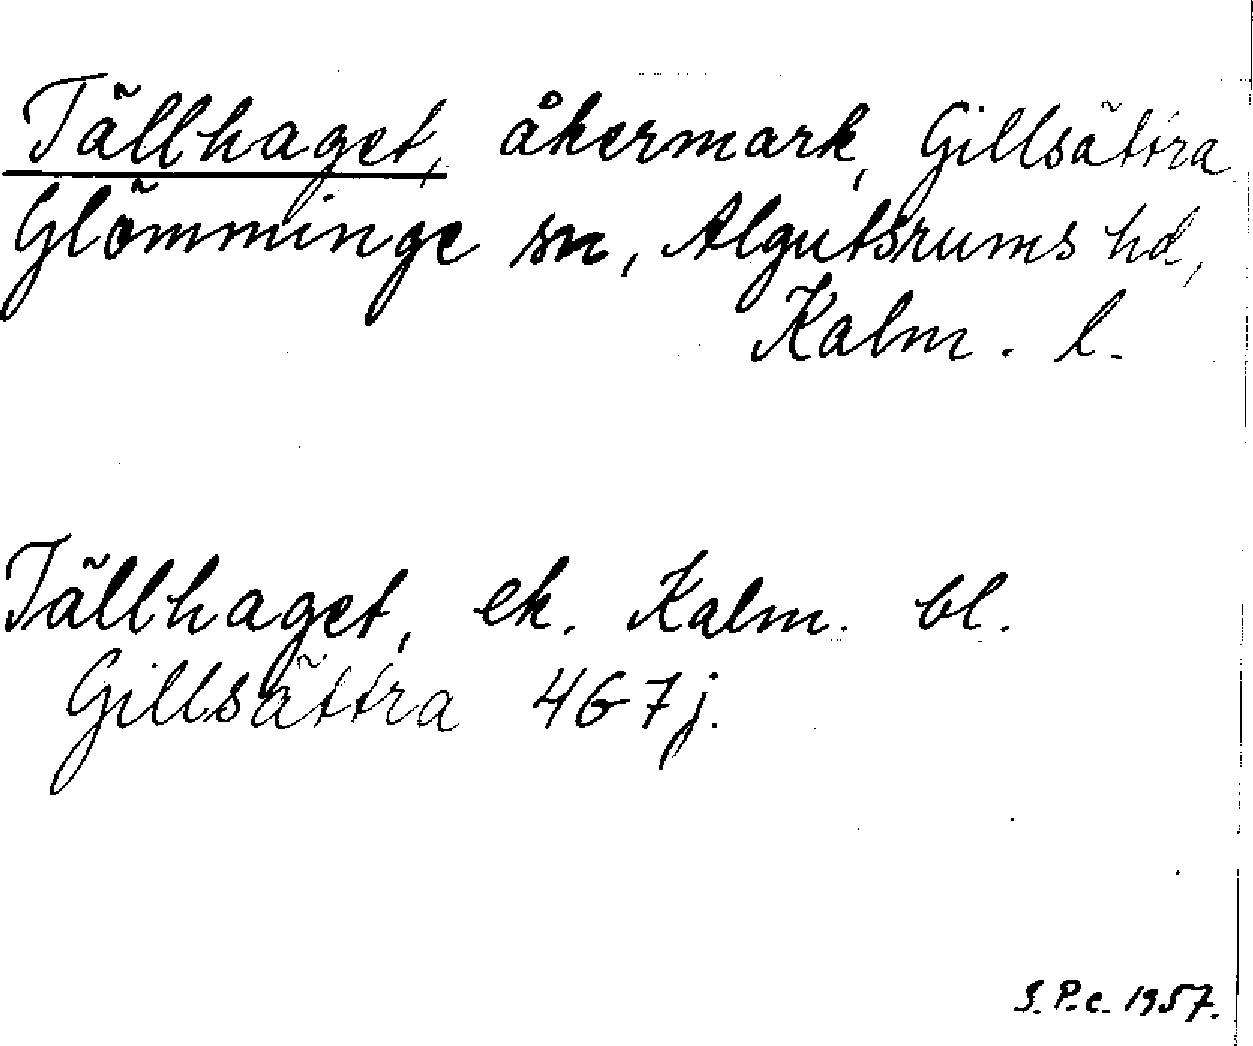 Tällhaget, åkermark, Gillsättra
Glömminge sn, Algutsrums hd,
Kalm. l.
Tällhaget, ek. Kalm. bl.
Gillsättra 4G7j.
S.P.c. 1957.